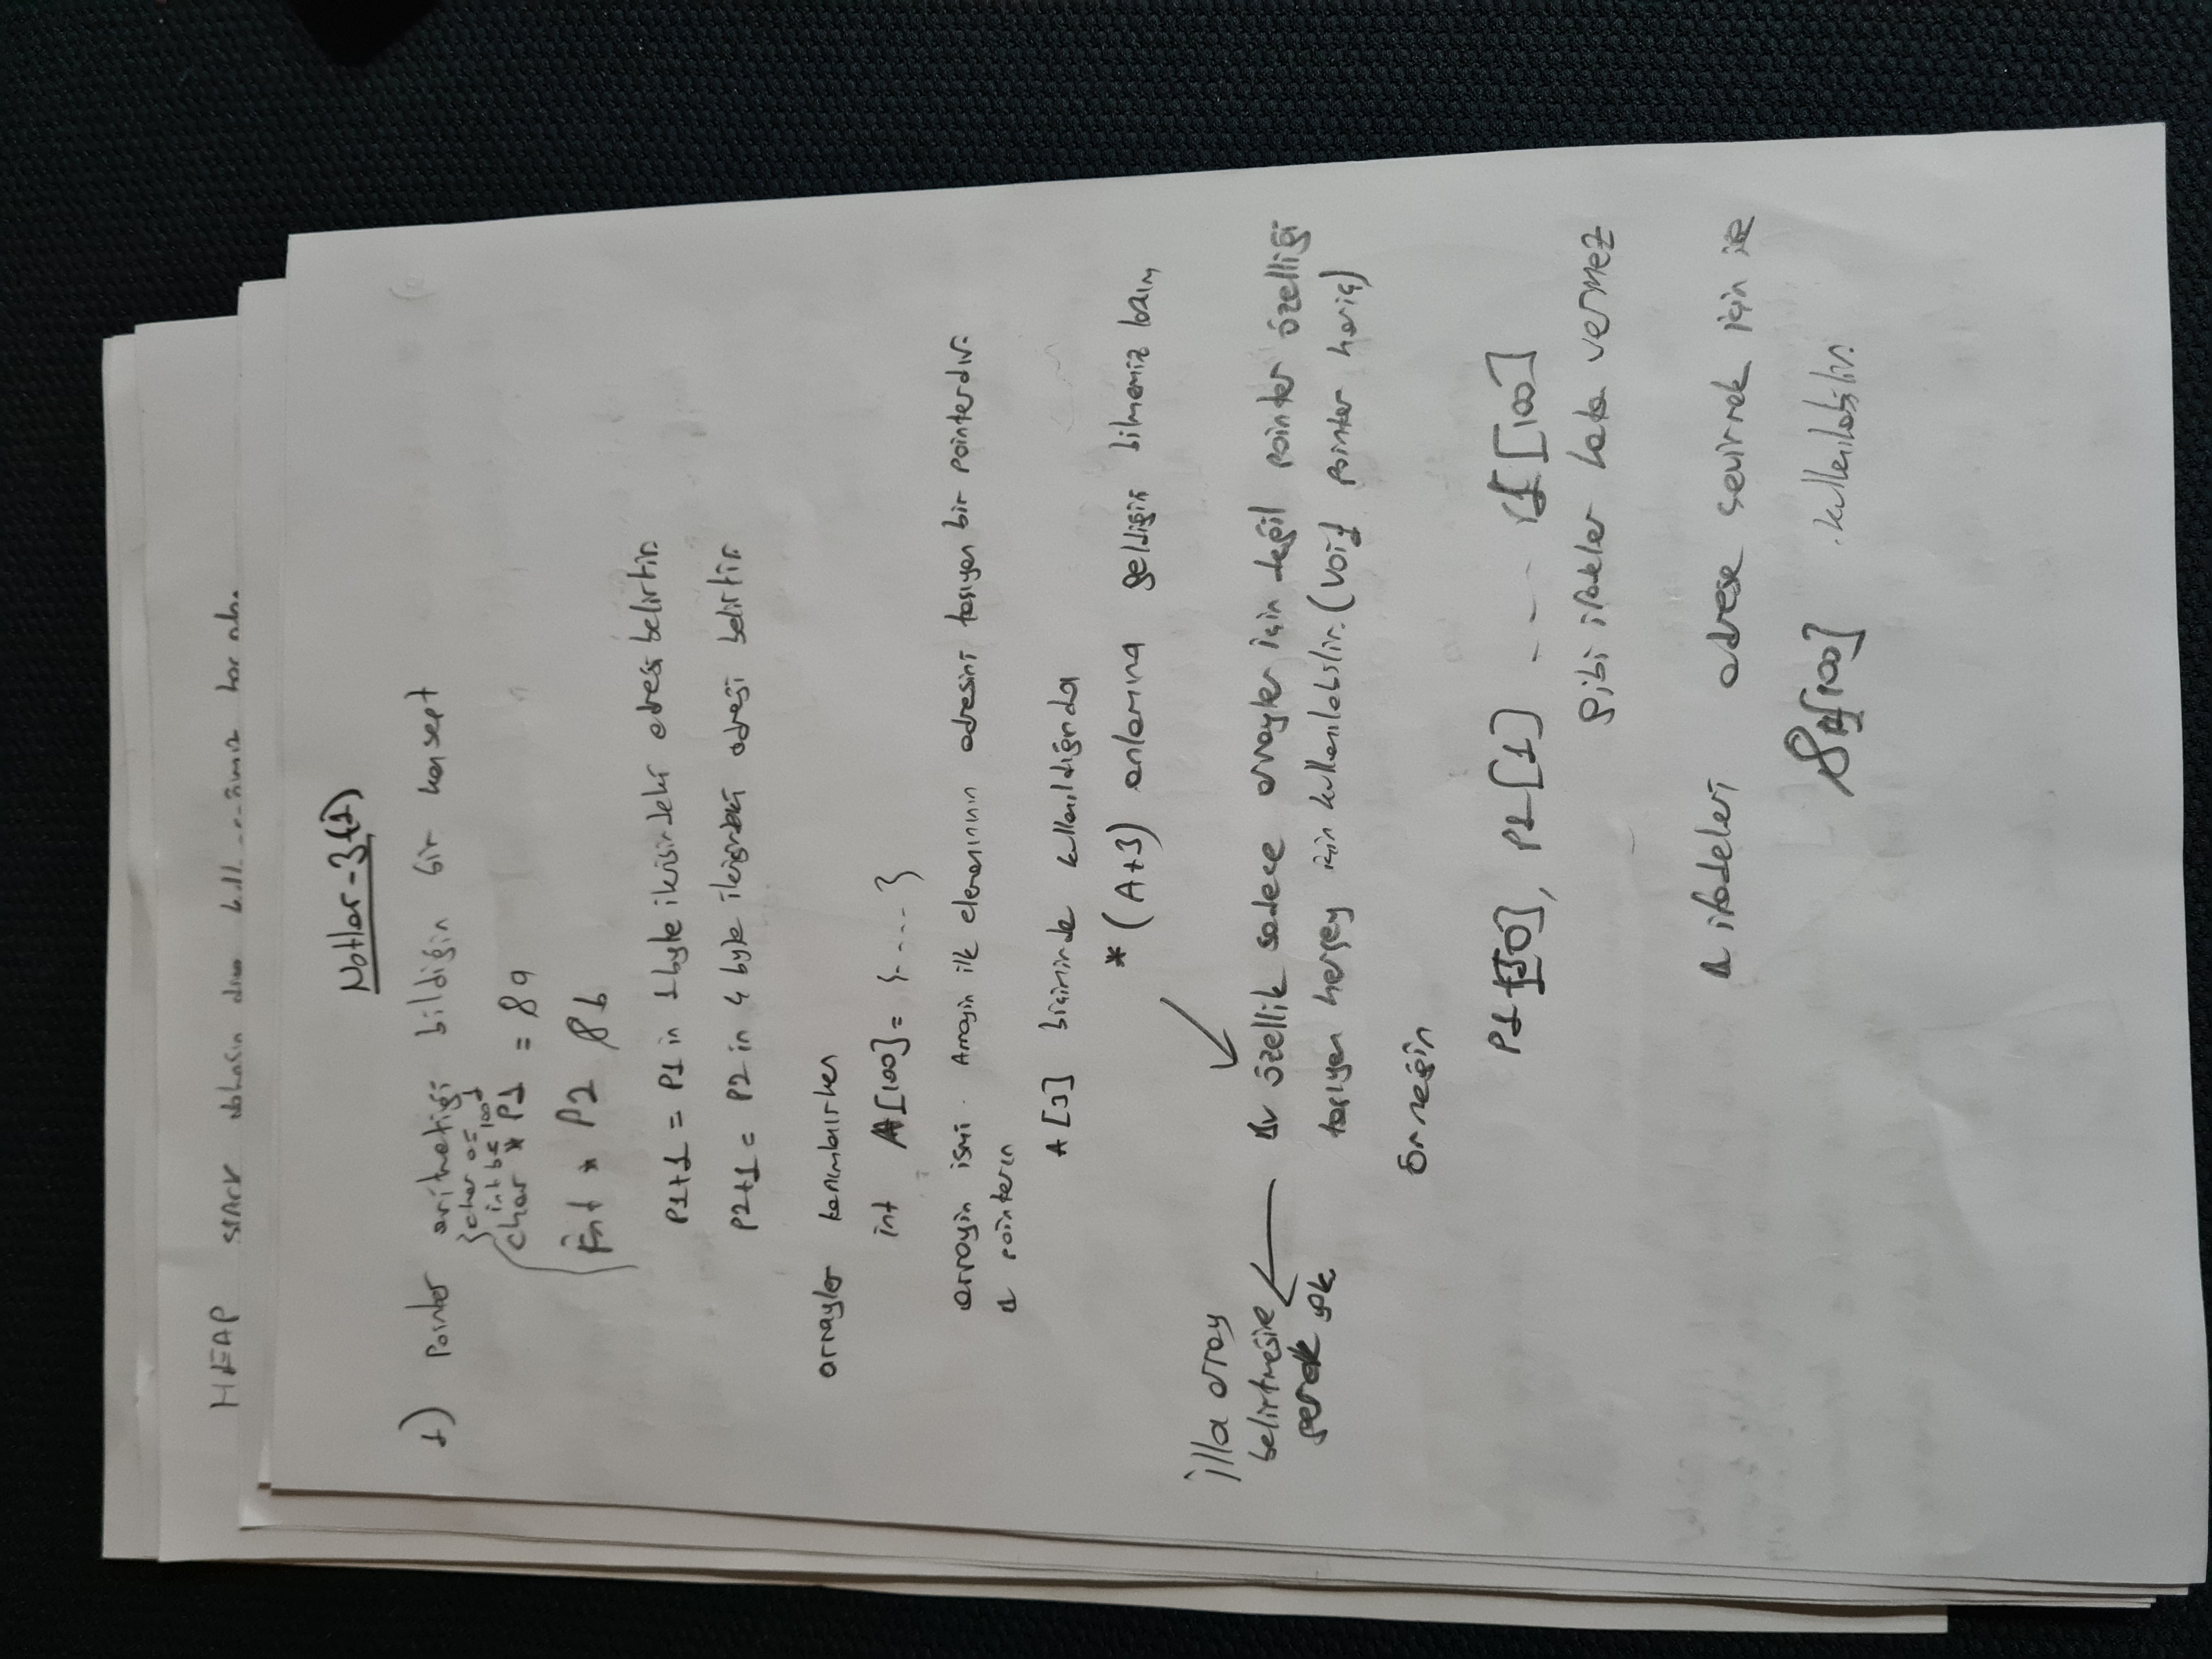 HEAP STACK
Notlar-3(1)
1) Pointer aritmetiği bildiğin bir konsept
char a=1
int b= 100
char * P1 = &a
int * P2 &b
P1+1 = P1 in 1 byte ilerisindeki adresi belirtir.
P2+1 = P2 in 4 byte ilerisindeki adresi belirtir.
arrayler tanımlanırken
int A[100]= {....}
arrayin ismi. Arrayin ilk elemanının adresini taşıyan bir pointerdır.
Bu pointerın
A[3] biçiminde kullanıldığında
*(A+3) anlamına geldiğini bilmemiz lazım
Bu özellik sadece arrayler için değil pointer özelliği
taşıyan herşey için kullanılabilir. (void pointer hariç)
İlla array
belirtmesine
gerek yok.
Örneğin
P1[0], P1[1] ---- P1[100]
gibi ifadeler hata vermez
Bu ifadeleri adrese çevirmek için ise
&P1[100] kullanılabilir.